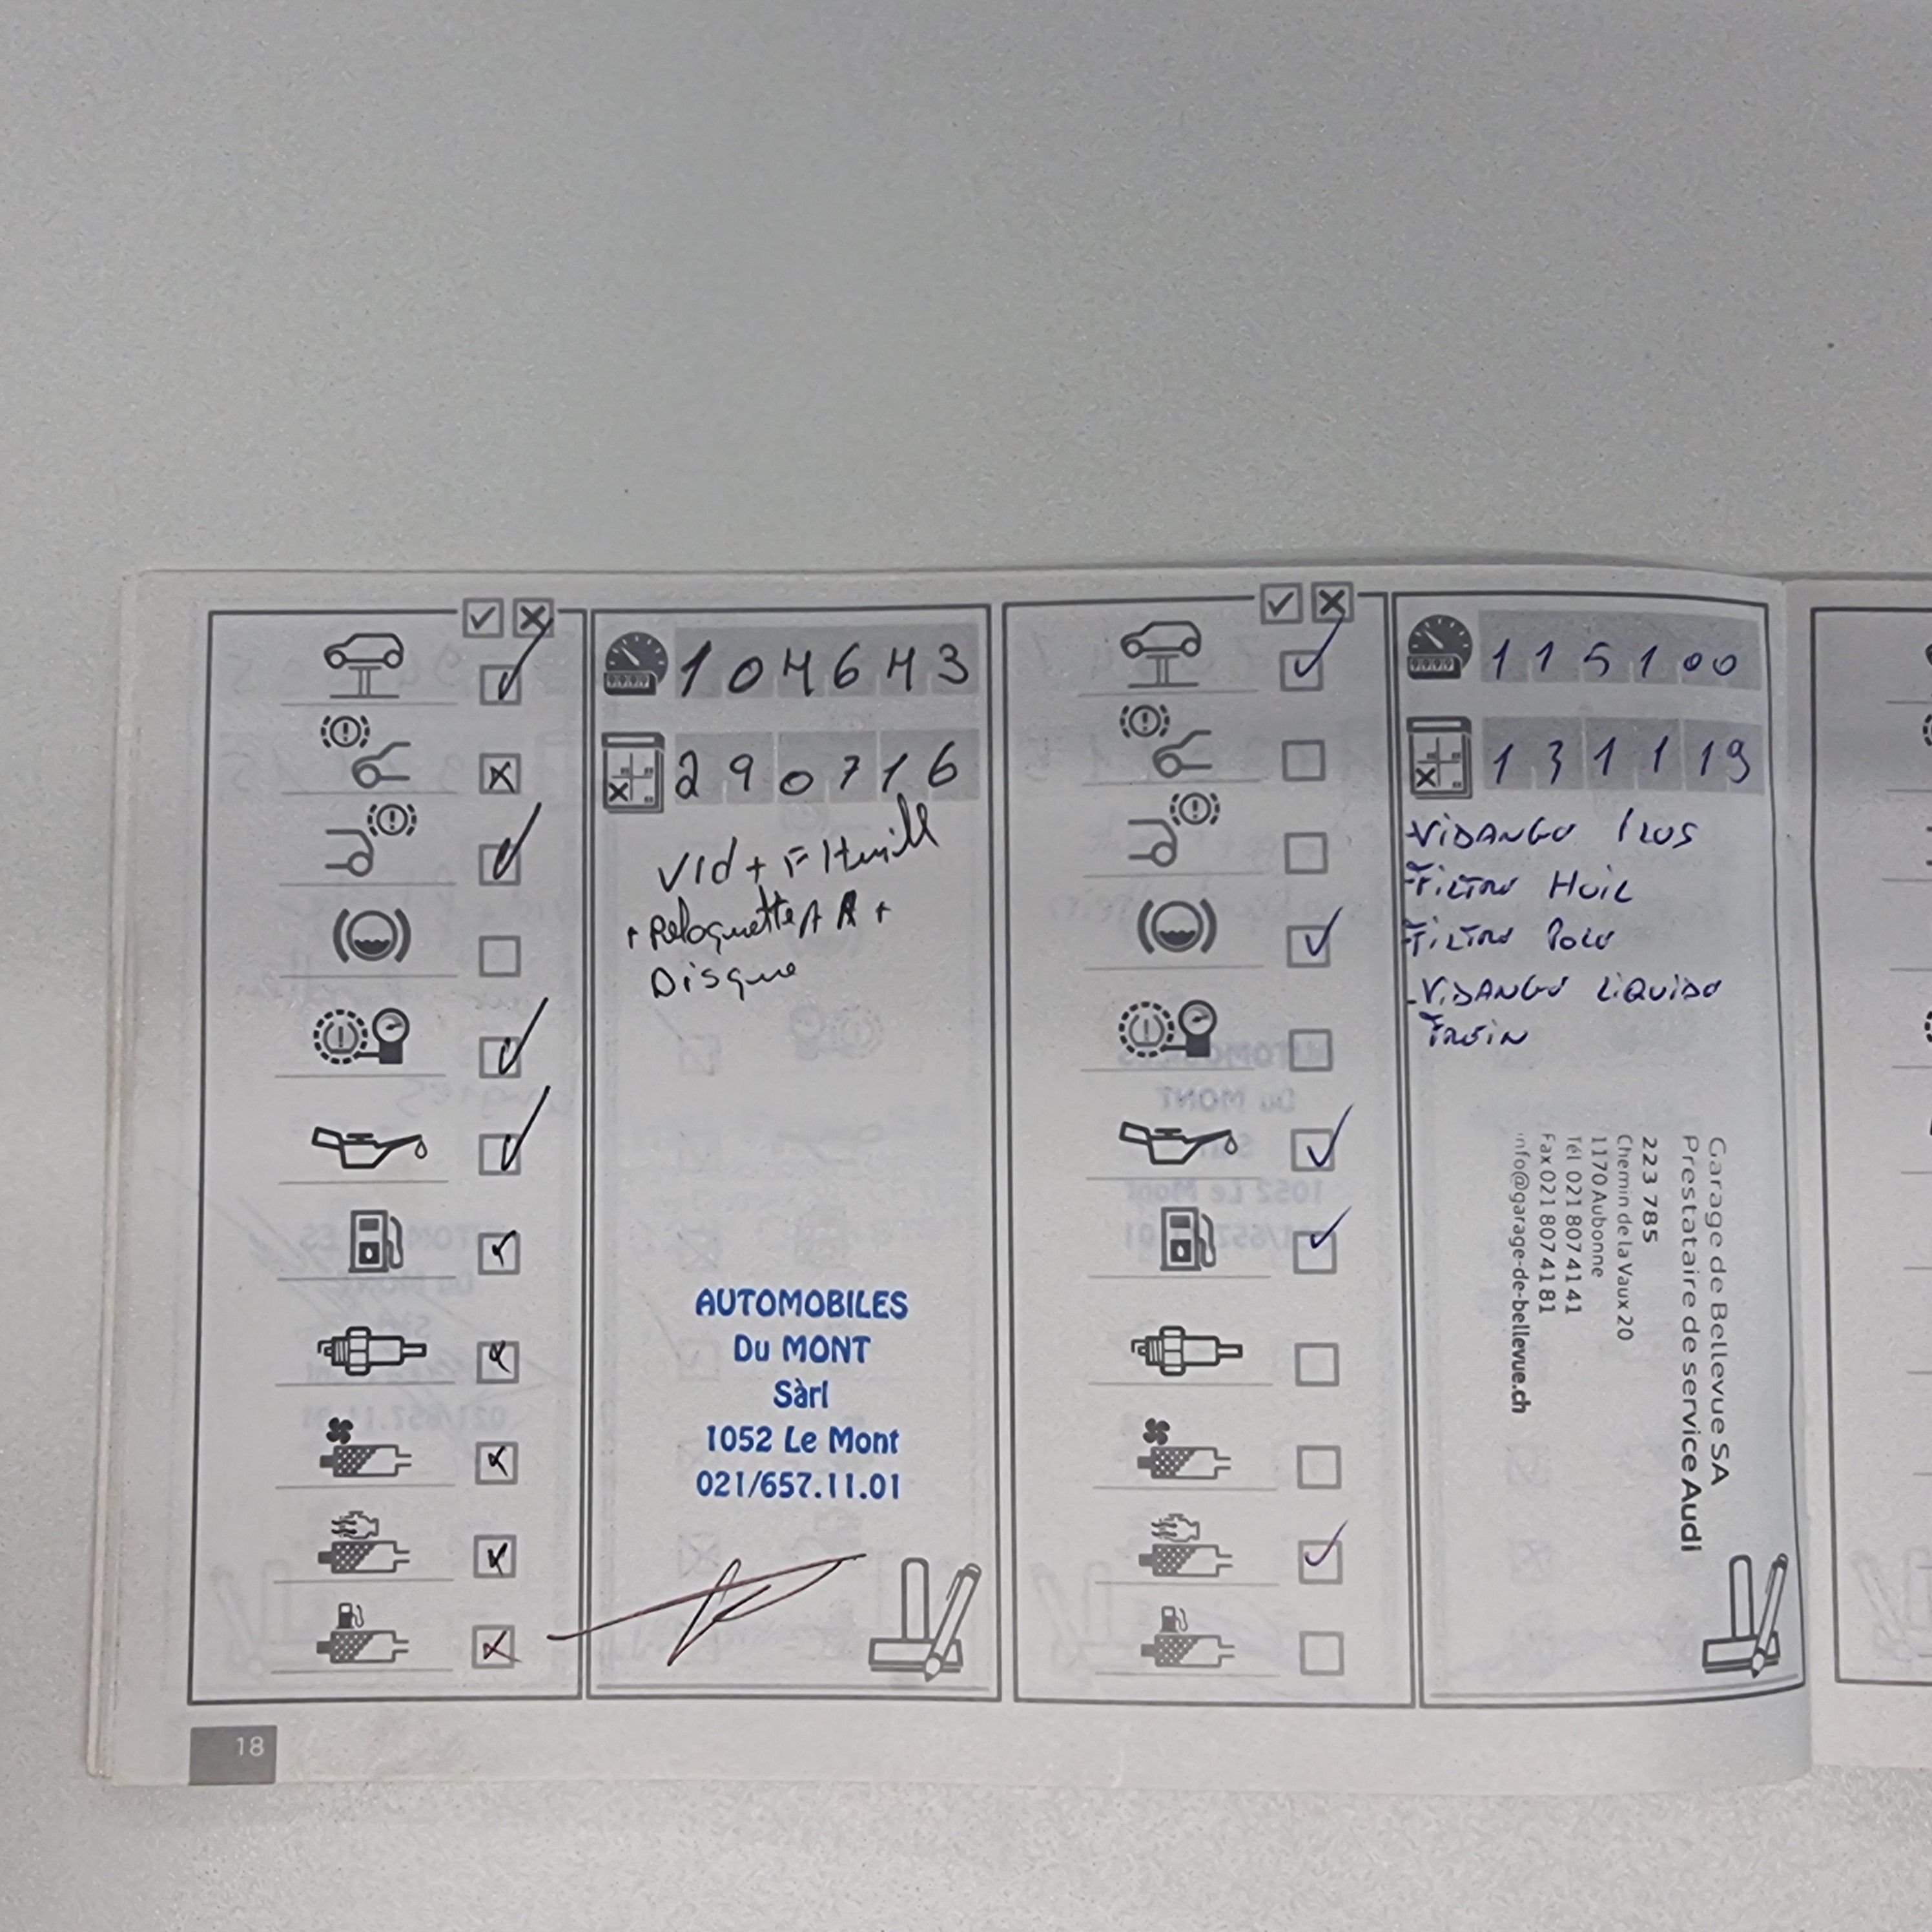 104643
290716
Vid + F Huill
+ Plaquettes A +
Disque
AUTOMOBILES
Du MONT
Sàrl
1052 Le Mont
021/657.11.01
115100
131119
-VIDANGE
FILTRE HUIL
FILTRE
-VIDANGE LIQUIDE
FREIN
Garage de Bellevue SA
Prestataire de service Audi
223 785
Chemin de la Vaux 20
1170 Aubonne
Tél 021 807 41 41
Fax 021 807 41 81
info@garage-de-bellevue.ch
18